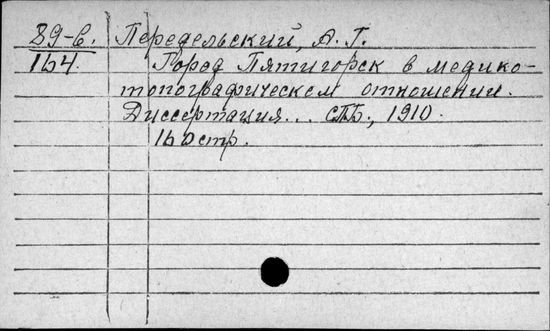 89-в. Передельский, А. Г.
164. Город Пятигорск в медико-
топографическом отношении.
Диссертация... СПБ., 1910.
160 стр.